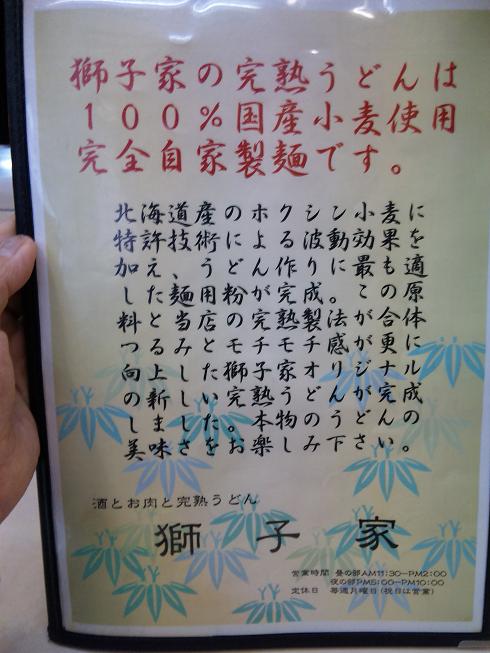 獅子家の完熟うどんは
１００％国産小麦使用
完全自家製麺です。
北海道産のホクシン小麦に
特許技術による波動効果を
加え、うどん作りに最も適
した麺用粉が完成。この原
料と当店の完熟製法が合体
つるみとモチモチ感が更に
向上した獅子家オリジナル
の新しい完熟うどんが完成
しました。本物のうどんの
美味しさをお楽しみ下さい。
酒とお肉と完熟うどん
獅子家
営業時間 昼の部AM11:30-PM2:00
夜の部PM5:00-PM10:00
定休日 毎週月曜日(祝日は営業)